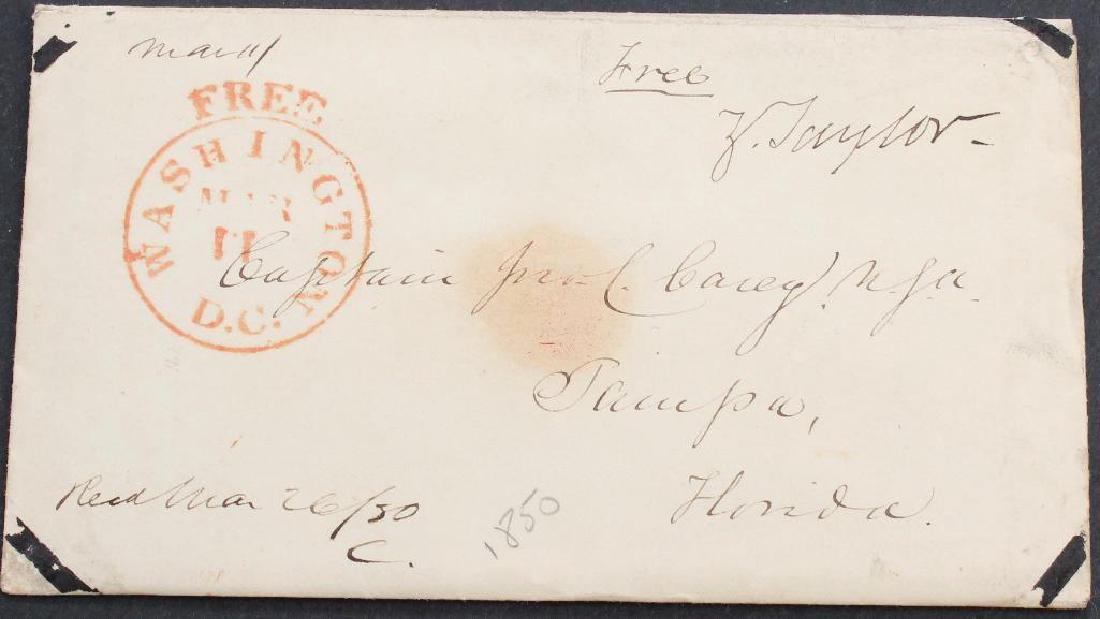 Free
Z. Taylor
FREE
WASHINGTON
MAR
11
D.C.
Captain Jno. C. Casey
Tampa,
Florida.
Recd Mar 26/50
C.
1850